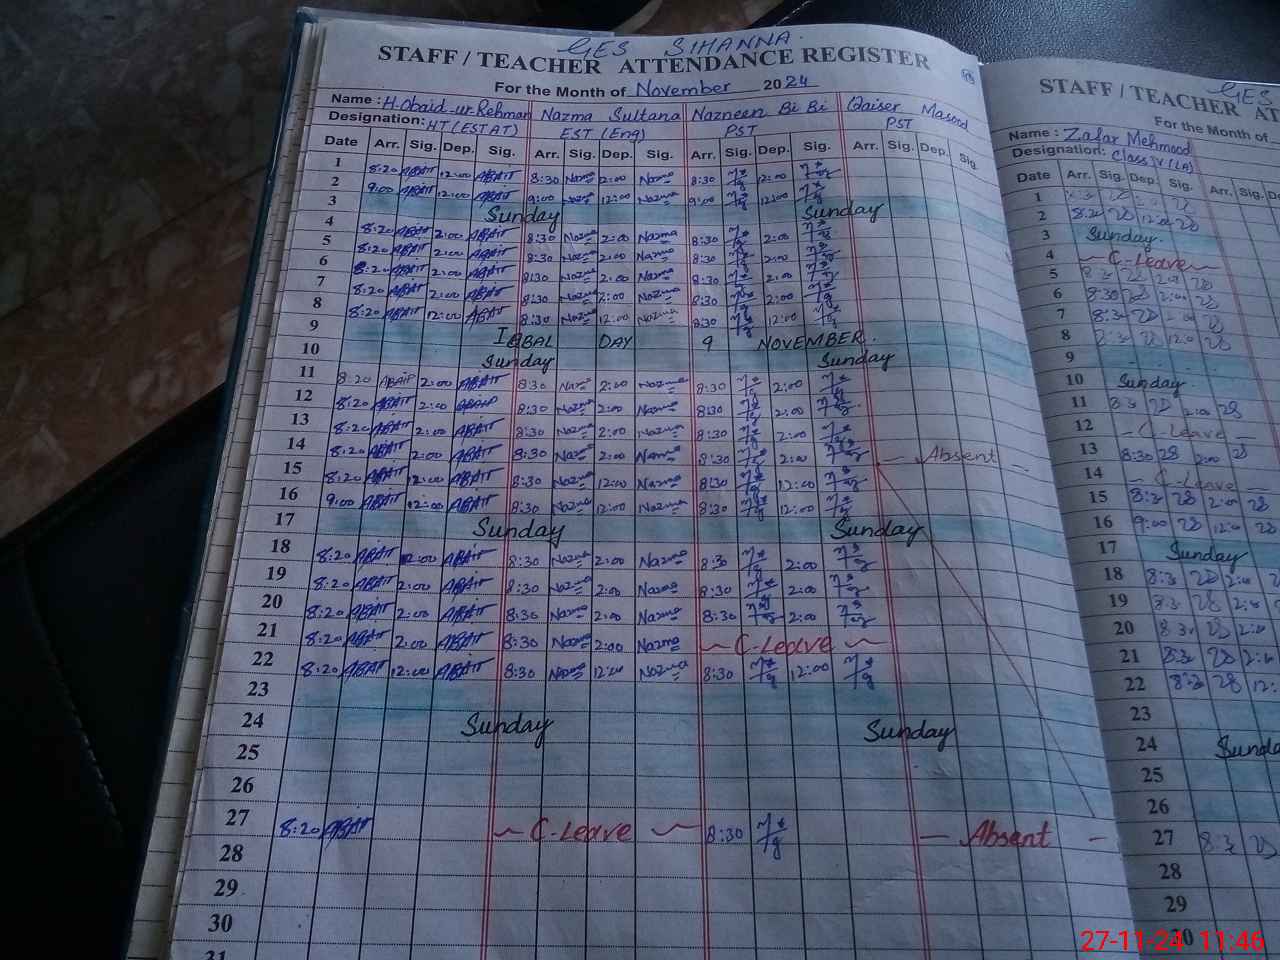 GES SIHANNA.
STAFF / TEACHER ATTENDANCE REGISTER
For the Month of November 2024
Name : H.Obaid-ur-Rehman Nazma Sultana Nazneen Bi Bi Qaiser Masood
Designation: HT (EST AT) EST (Eng) PST PST
Date Arr. Sig. Dep. Sig. Arr. Sig. Dep. Sig. Arr. Sig. Dep. Sig. Arr. Sig. Dep. Sig.
1 8:20 ABAIT 12:00 ABAIT 8:30 Nazma 2:00 Nazma 8:30 12:00
2 9:00 ABAIT 12:00 ABAIT 9:00 Nazma 12:00 Nazma 9:00 12:00
3 Sunday Sunday
4 8:20 ABAIT 2:00 ABAIT 8:30 Nazma 2:00 Nazma 8:30 2:00
5 8:20 ABAIT 2:00 ABAIT 8:30 Nazma 2:00 Nazma 8:30 2:00
6 8:20 ABAIT 2:00 ABAIT 8:30 Nazma 2:00 Nazma 8:30 2:00
7 8:20 ABAIT 2:00 ABAIT 8:30 Nazma 2:00 Nazma 8:30 2:00
8 8:20 ABAIT 12:00 ABAIT 8:30 Nazma 12:00 Nazma 8:30 12:00
9 IQBAL DAY 9 NOVEMBER.
10 Sunday Sunday
11 8:20 ABAIT 2:00 ABAIT 8:30 Nazma 2:00 Nazma 8:30 2:00
12 8:20 ABAIT 2:00 ABAIT 8:30 Nazma 2:00 Nazma 8:30 2:00
13 8:20 ABAIT 2:00 ABAIT 8:30 Nazma 2:00 Nazma 8:30 2:00
14 8:20 ABAIT 2:00 ABAIT 8:30 Nazma 2:00 Nazma 8:30 2:00 — Absent —
15 8:20 ABAIT 12:00 ABAIT 8:30 Nazma 12:00 Nazma 8:30 12:00
16 9:00 ABAIT 12:00 ABAIT 8:30 Nazma 12:00 Nazma 8:30 12:00
17 Sunday Sunday
18 8:20 ABAIT 2:00 ABAIT 8:30 Nazma 2:00 Nazma 8:30 2:00
19 8:20 ABAIT 2:00 ABAIT 8:30 Nazma 2:00 Nazma 8:30 2:00
20 8:20 ABAIT 2:00 ABAIT 8:30 Nazma 2:00 Nazma 8:30 2:00
21 8:20 ABAIT 2:00 ABAIT 8:30 Nazma 2:00 Nazma ~ C-Leave ~
22 8:20 ABAIT 12:00 ABAIT 8:30 Nazma 12:00 Nazma 8:30 12:00
23
24 Sunday Sunday
25
26
27 8:20 ABAIT ~ C-Leave ~ 8:30 — Absent —
28
29
30
31
GES
STAFF / TEACHER AT
For the Month of
Name : Zafar Mehmood
Designation: Class IV (LA)
Date Arr. Sig. Dep. Sig. Arr. Sig. D
1
2 8:30 12:00
3 Sunday.
4 ~ C-Leave ~
5 8:30 2:00
6 8:30 2:00
7 8:30 2:00
8 8:30 12:00
9
10 Sunday.
11 8:30 2:00
12 — C-Leave —
13 8:30 2:00
14 — C-Leave —
15 8:30 2:00
16 9:00 12:00
17 Sunday
18 8:30 2:00
19 8:30 2:00
20 8:30 2:00
21 8:30 2:00
22 8:30 12:
23
24 Sunda
25
26
27 8:30
28
29
30
27-11-24 11:46